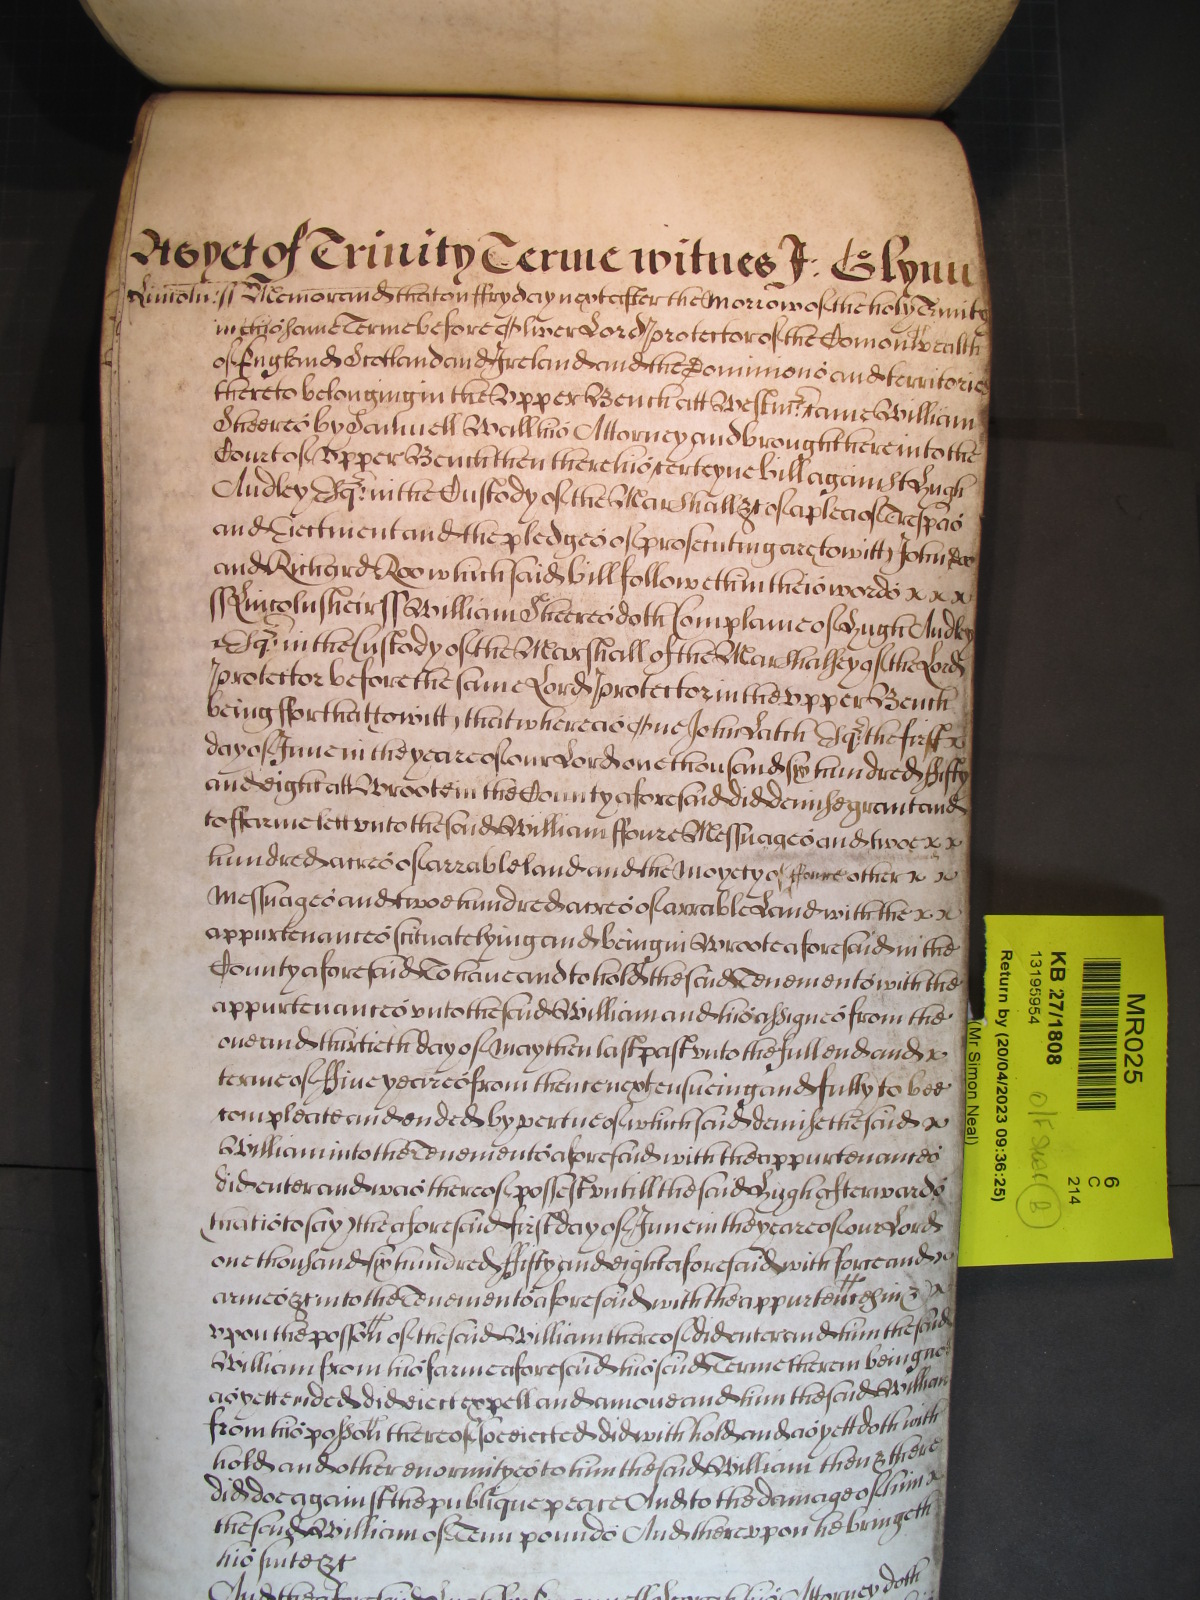 As yet of Trinity Terme witnes J: Glynn
Lincoln: ss Memorand that on ffryday next after the Morrow of the holy Trinity
in this same Terme before Oliver Lord Protector of the Comonwealth
of England Scotland and Ireland and the Dominions and territories
thereto belonging in the Upper Bench att Westmr: came William
Gheeres by Samuell Wall his Attorney and brought here into the
Court of Upper Bench then there his certeyne bill against Hugh
Audley Esqr: in the Custody of the Marshall &c of a plea of Trespas
and Eiectment and the pledges of prosecuting are to witt John Doe
and Richard Roo which said bill followeth in theis words x x x
ss Lincolnsheir ss William Gheeres doth Complaine of Hugh Audley
Esqr: in the Custody of the Marshall of the Marshalsey of the Lord
Protector before the same Lord Protector in the upper Bench
being ffor that to witt, that whereas One John Latch Esqr: the first x
day of June in the yeare of our Lord one thousand six hundred ffifty
and eight att Wroote in the County aforesaid did demise grant and
to ffarme lett unto the said William ffoure Messuages and twoe x x
hundred acres of arrable land and the Moyety of ffoure other x x
Messuages and twoe hundred acres of arrable Land with the x x
appurtenances scituate lying and being in Wroote aforesaid in the
County aforesaid To haue and to hold the said Tenements with the
appurtenances unto the said William and his assignes from the
one and thirtieth day of May then last past unto the full end and x
terme of ffiue yeares from thence next ensueing and fully to bee
compleate and ended by vertue of which said demise the said x
William into the Tenements aforesaid with the appurtenances
did enter and was thereof possest untill the said Hugh afterwards
(that is to say) the aforesaid first day of June in the yeare of our Lord
one thousand six hundred ffifty and eight aforesaid with force and x
armes &c into the Tenements aforesaid with the appurtences in &c x
upon the possōn of the said William thereof did enter and him the said
William from his farme aforesaid his said Terme therein being not
as yett ended did eiect expell and amoue and him the said William
from his possōn thereof soe eiected did with hold and as yett doth with
hold and other enormityes to him the said William then & there
did doe against the publique peace And to the damage of him x
the said William of Tenn pounds And thereupon he bringeth
his suite &c
And the aforesaid Hugh by his Attorney doth
MR025
KB 27/1808
13195954
Return by (20/04/2023 09:36:25)
(Mr Simon Neal)
6
C
214